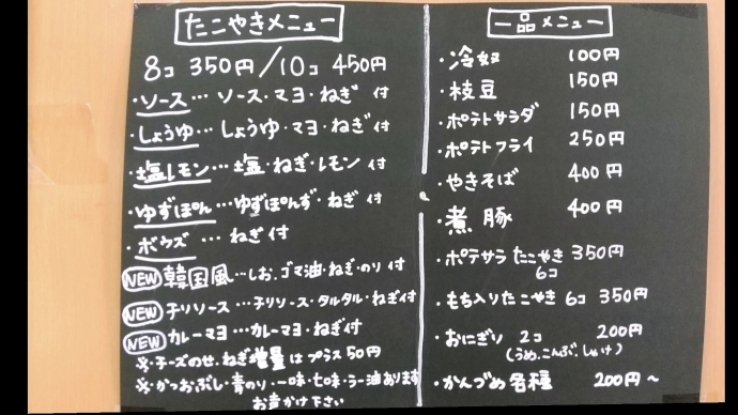 たこやきメニュー
8コ 350円/10コ 450円
・ソース…ソース・マヨ・ねぎ 付
・しょうゆ…しょうゆ・マヨ・ねぎ 付
・塩レモン…塩・ねぎ・レモン 付
・ゆずぽん…ゆずぽんず・ねぎ 付
・ボウズ…ねぎ付
NEW 韓国風…しお、ゴマ油・ねぎ・のり 付
NEW チリソース…チリソース・タルタル・ねぎ付
NEW カレーマヨ…カレーマヨ・ねぎ付
※・チーズのせ、ねぎ増量はプラス50円
※・かつおぶし・青のり・一味・七味・ラー油あります
お声かけ下さい
一品メニュー
・冷奴 100円
・枝豆 150円
・ポテトサラダ 150円
・ポテトフライ 250円
・やきそば 400円
・煮豚 400円
・ポテサラたこやき 350円
6コ
・もち入りたこやき 6コ 350円
・おにぎり 2コ 200円
(うめ、こんぶ、しゃけ)
・かんづめ各種 200円~